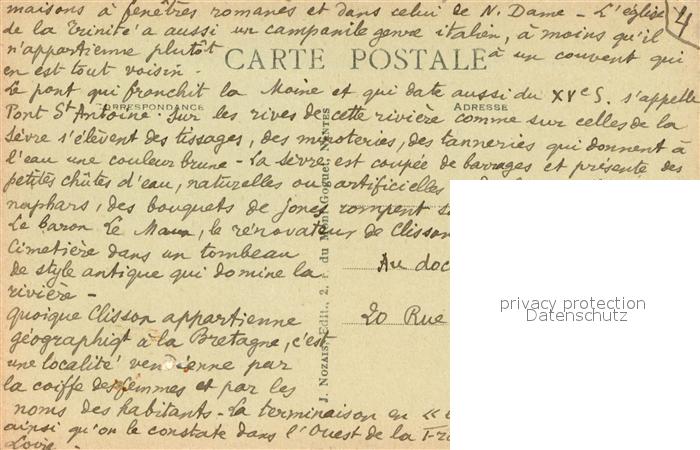 maisons à fenêtres romanes et dans celui de N. Dame - L'église
4
de la Trinité a aussi un campanile genre italien, à moins qu'il
n'appartienne plutôt à un couvent qui
CARTE POSTALE
en est tout voisin.
Le pont qui franchit la Moine et qui date aussi du XVe S. s'appelle
CORRESPONDANCE
ADRESSE
Pont St Antoine. Sur les rives de cette rivière comme sur celles de la
Sèvre s'élèvent des tissages, des minoteries, des tanneries qui donnent à
l'eau une couleur brune - La Sèvre est coupée de barrages et présente des
petites chûtes d'eau, naturelles ou artificielles
naphars, des bouquets de joncs rompent
Le baron Le Maux, le rénovateur de Clisson
Cimetière dans un tombeau
de style antique qui domine la
rivière -
Au doc
quoique Clisson appartienne
20 Rue
géographiqt à la Bretagne, c'est
une localité vendéenne par
la coiffe des femmes et par les
noms des habitants - La terminaison en «
ainsi qu'on le constate dans l'Ouest de la
Loire -
J. NOZAIS, Edit., 2, du Mont-Goguet, NANTES
privacy protection
Datenschutz